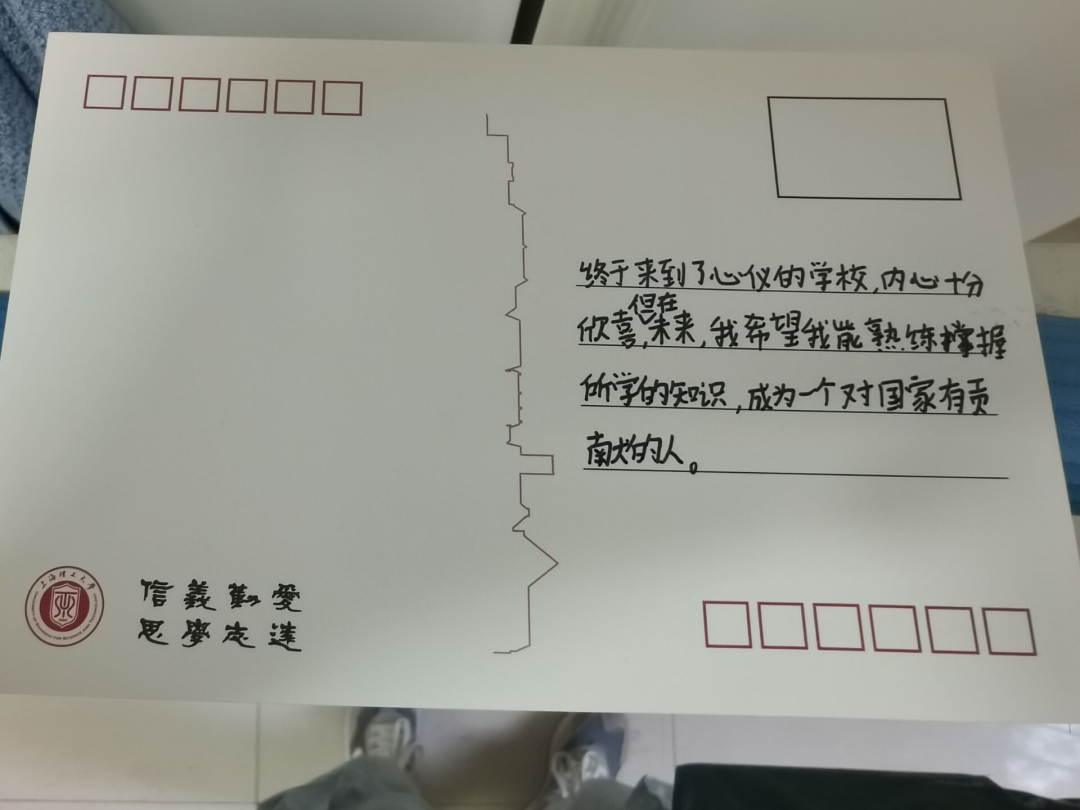 终于来到了心仪的学校,内心十分
但在
欣喜,未来,我希望我能熟练掌握
所学的知识,成为一个对国家有贡
献的人。
上海理工大学
信義勤愛
思學志遠